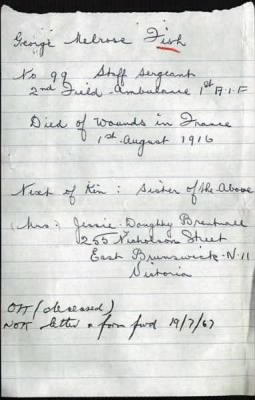 George Melrose Fish
No 99 Staff Sergeant
2nd Field Ambulance 1st A.I.F
Died of Wounds in France
1st August 1916
Next of Kin: Sister of the Above
Mrs: Jessie Doughty Brentnall
255 Nicholson Street
East Brunswick. N.11
Victoria
Off (deceased)
NOK letter & form fwd 19/7/67